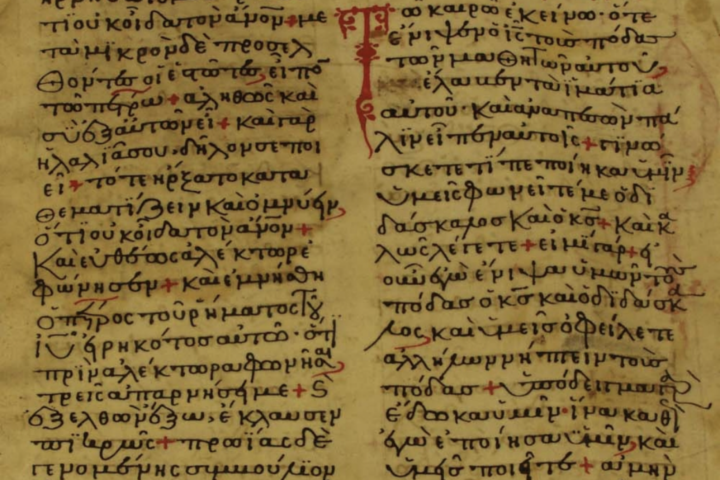 τι οὐκ οἶδα τὸν ἄνον + με
τὰ μικρὸν δὲ προσελ
θόντες οἱ ἑστῶτες εἶπον
τῶ πέτρω + ἀληθῶς καὶ
σὺ ἐξ αὐτῶν εἶ + καὶ γὰρ
ἡ λαλιά σου δῆλόν σε ποι
εῖ + τότε ἤρξατο κατα
θεματίζειν καὶ ὀμνύειν
ὅτι οὐκ οἶδα τὸν ἄνον +
Καὶ εὐθέως ἀλέκτωρ ἐ
φώνησεν + καὶ ἐμνήσθη
ὁ πέτρος τοῦ ῥήματος Ἰυ
εἰρηκότος αὐτῶ· ὅτι
πρὶν ἀλέκτωρα φωνῆσαι
τρεῖς ἀπαρνήσῃ με + Καὶ
ἐξελθὼν ἔξω, ἔκλαυσεν
πικρῶς + πρωΐας δὲ
γενομένης συμβούλιον
Τῶ καιρῶ ἐκείνω· ὅτε
ἔνιψεν ὁ Ἰς τοὺς πόδας
τῶν μαθητῶν αὐτοῦ,
ἔλαβεν τὰ ἱμάτια
αὐτοῦ· Καὶ ἀναπεσὼν πά
λιν εἶπεν αὐτοῖς + γινώ
σκετε τί πεποίηκα ὑμῖν
ὑμεῖς φωνεῖτέ με ὁ δι
δάσκαλος Καὶ ὁ κς + Καὶ κα
λῶς λέγετε + εἰμὶ γάρ + εἰ
οὖν ἐγὼ ἔνιψα ὑμῶν τοὺς
πόδας ὁ κς καὶ ὁ διδάσκα
λος καὶ ὑμεῖς ὀφείλετε
ἀλλήλων νίπτειν τοὺς
πόδας + ὑπόδειγμα γὰρ
ἔδωκα ὑμῖν· ἵνα καθὼς
ἐγὼ ἐποίησα ὑμῖν, καὶ
ὑμεῖς ποιεῖτε + ἀμὴν